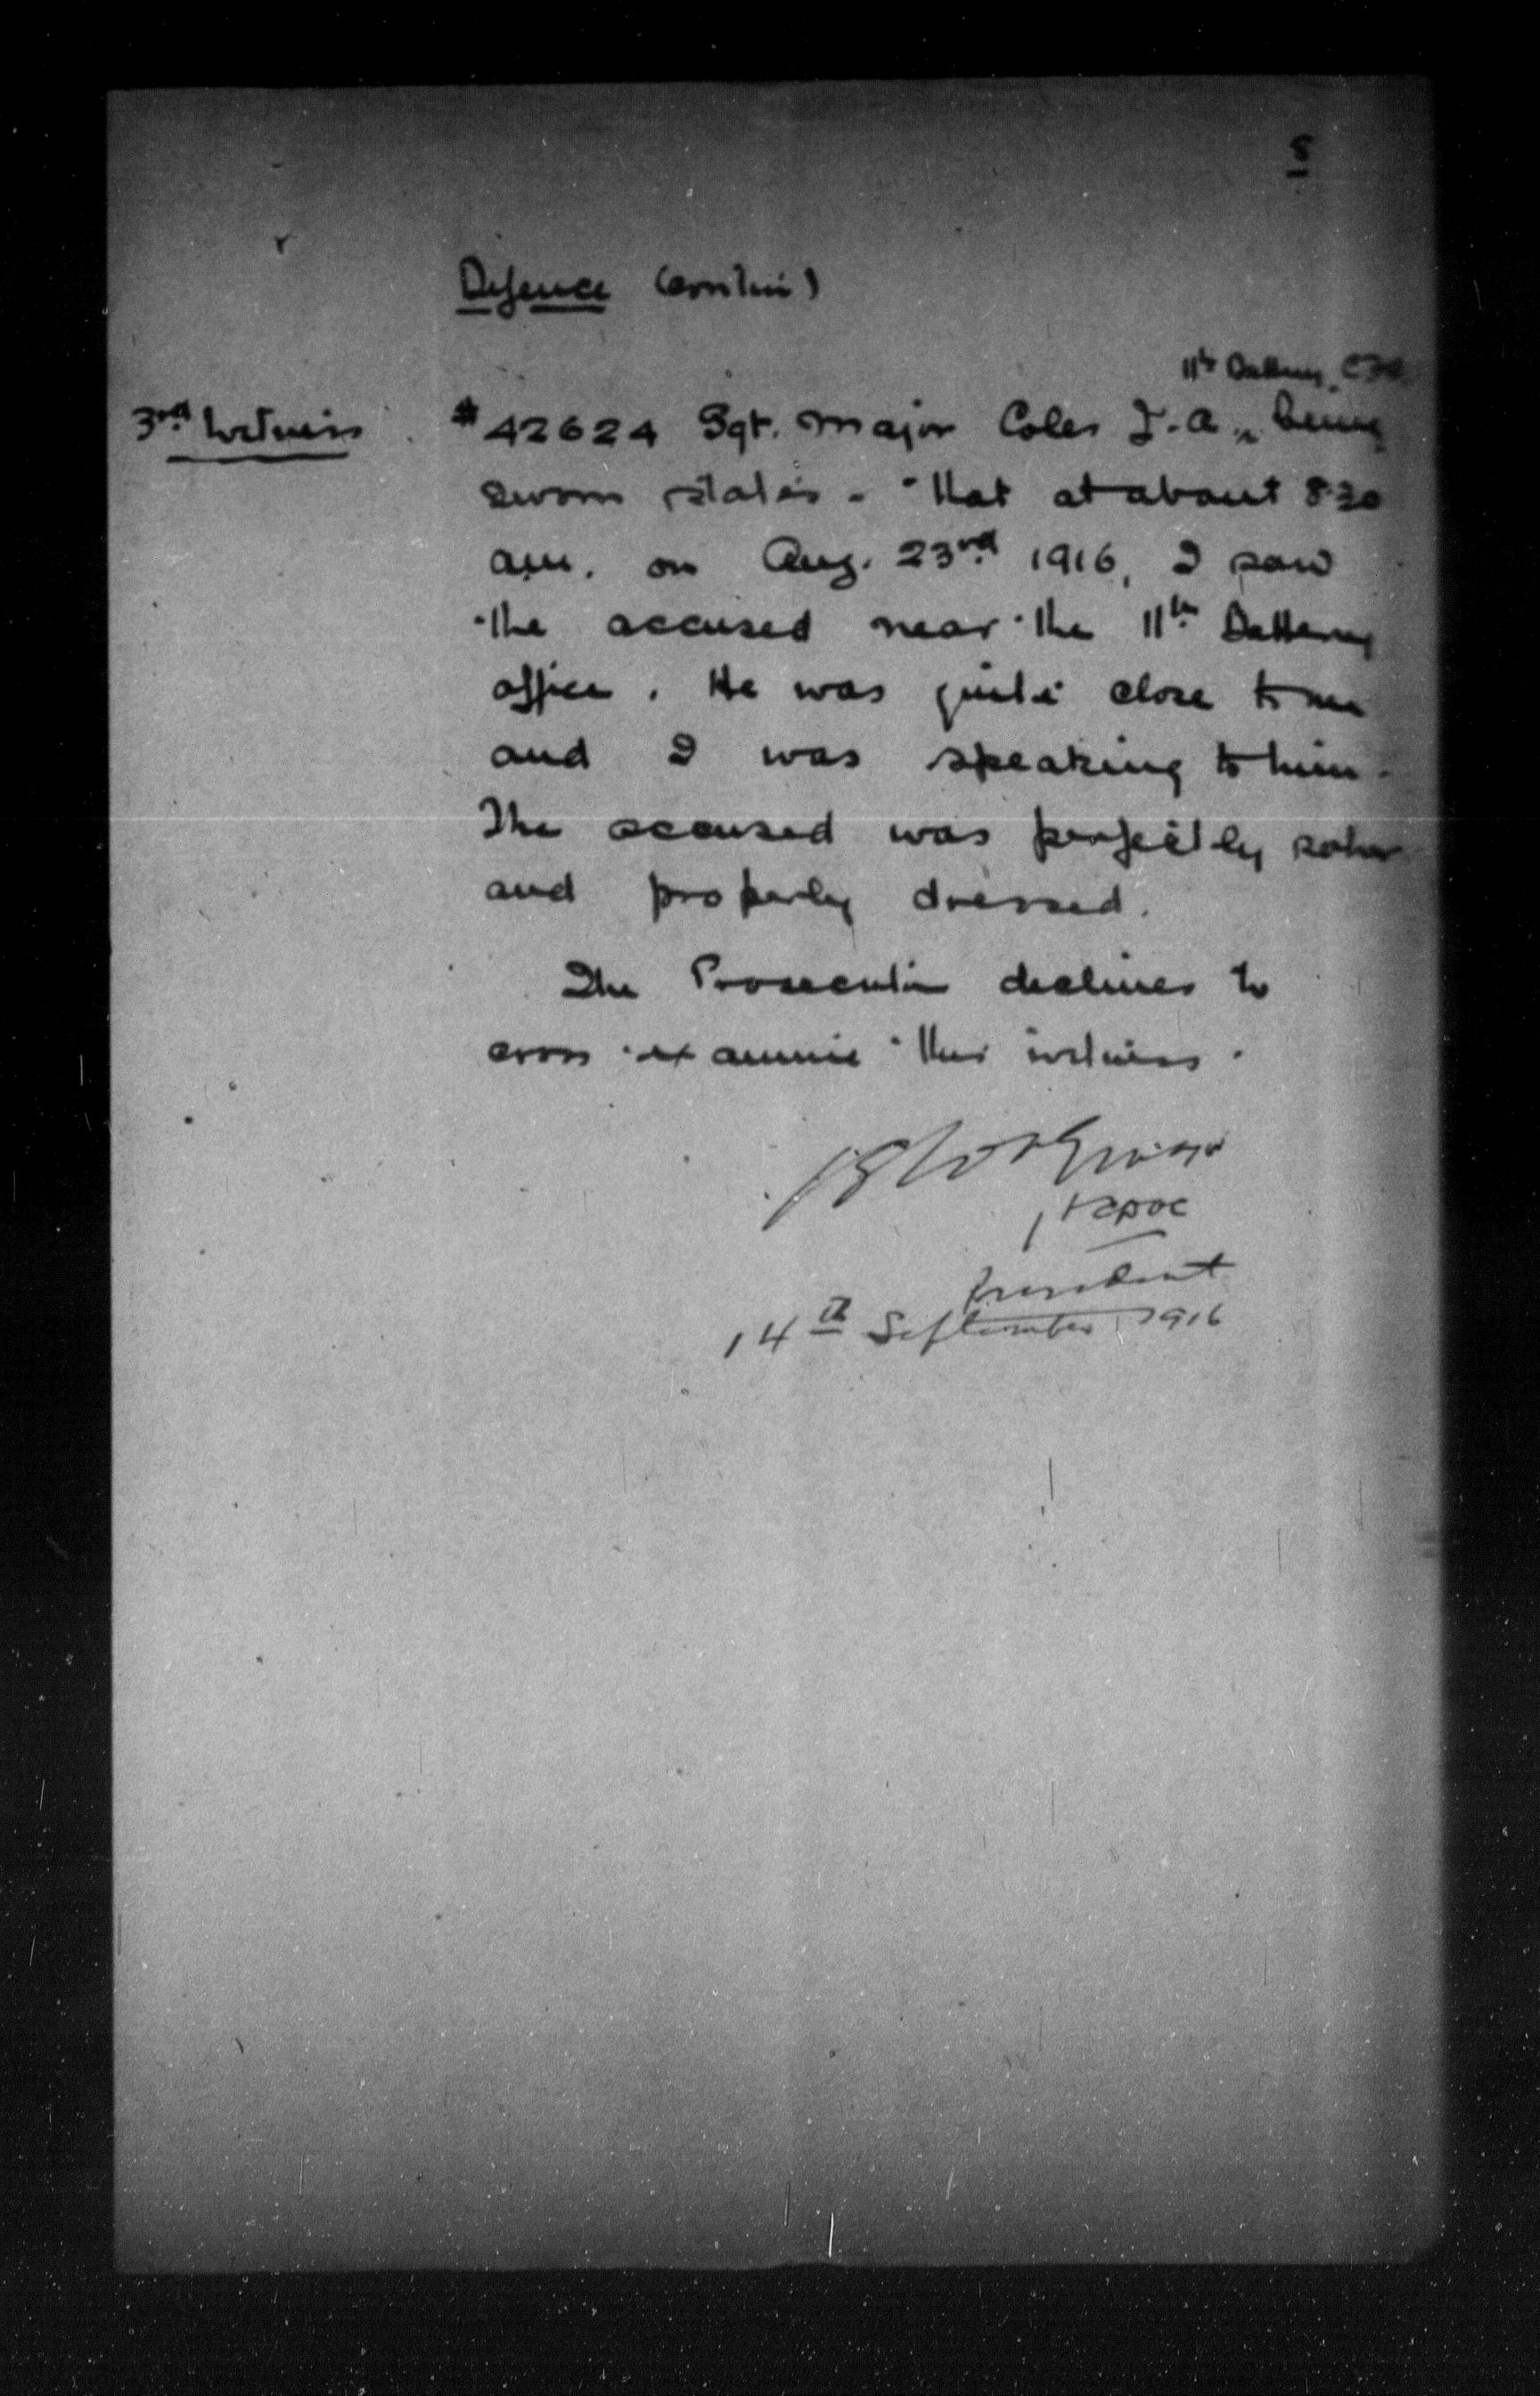 5
Defence (contin)
11th Battery, CFA
3rd Witness
#42624 Sgt. Major Coles J. A., being
sworn states - "That at about 8.30
am. on Aug. 23rd 1916, I saw
the accused near the 11th Battery
office. He was quite close to me
and I was speaking to him.
The accused was perfectly sober
and properly dressed.
The Prosecution declines to
cross examine this witness.
President
14th September 1916